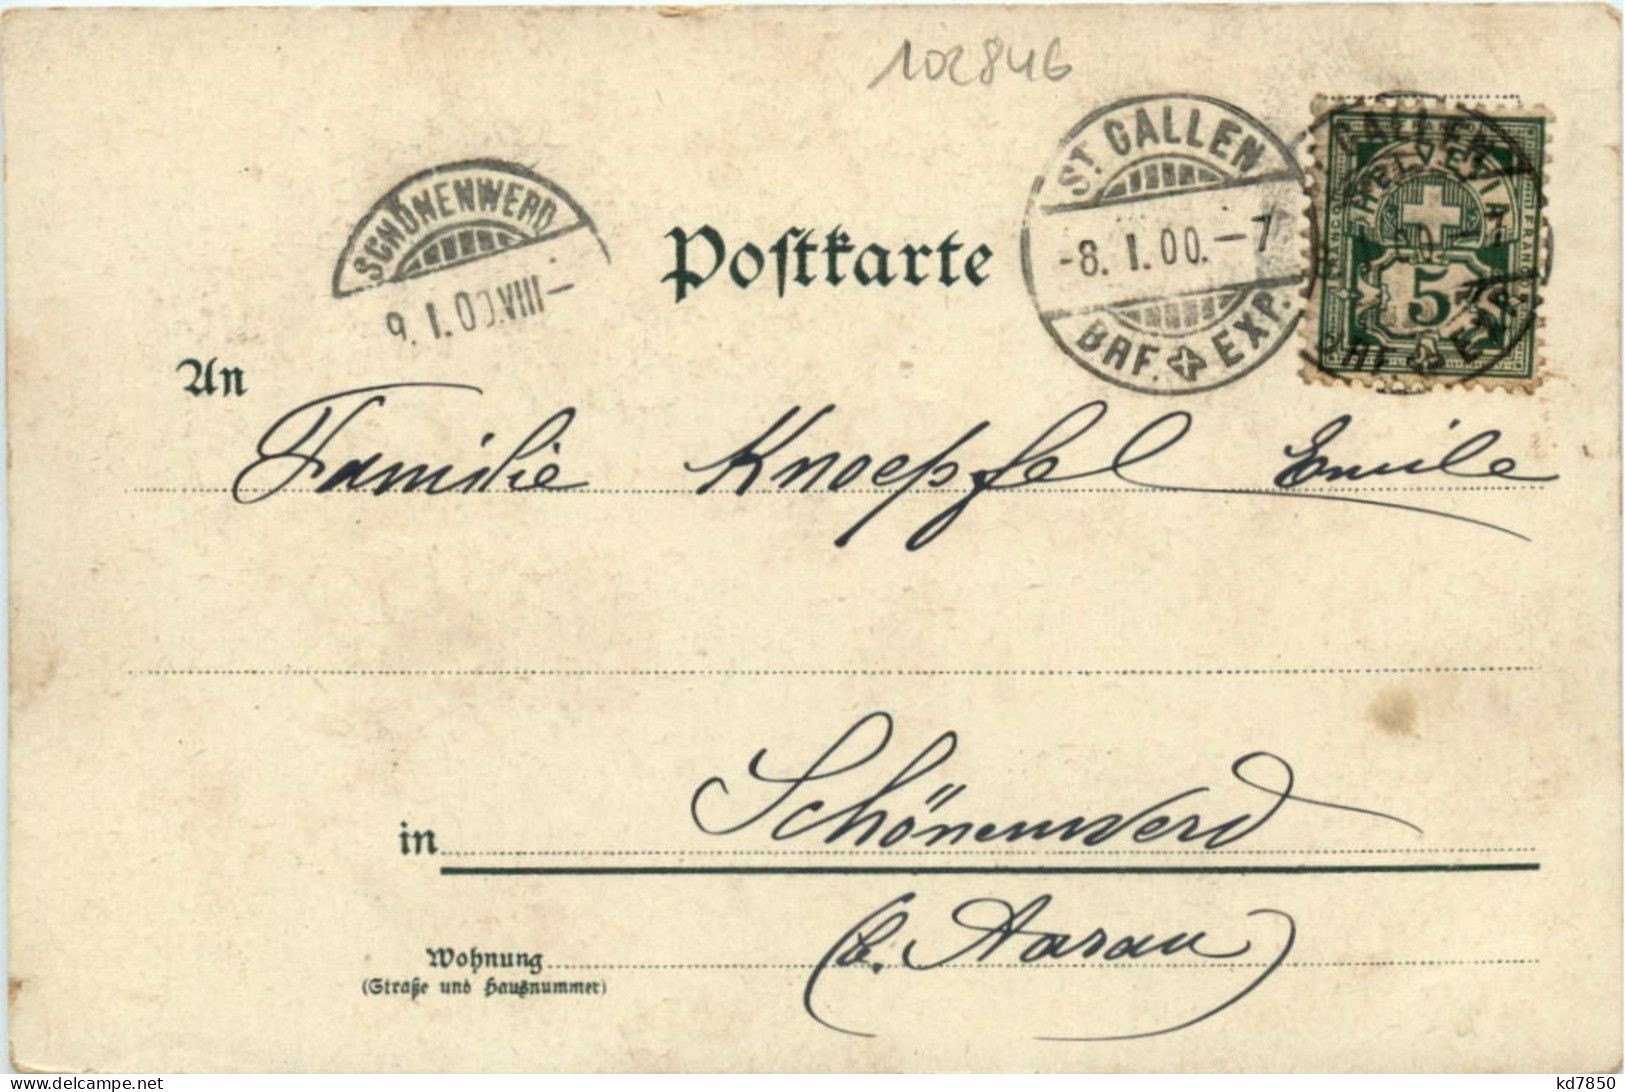 102846
ST. GALLEN
-8. I. 00. - 7
BRF. EXP.
HELVETIA
5
SCHÖNENWERD
9. I. 00. VIII -
Postkarte
An
Familie Knoepfel Emile
in Schönenwerd
(b. Aarau)
Wohnung
(Straße und Hausnummer)
kd7850